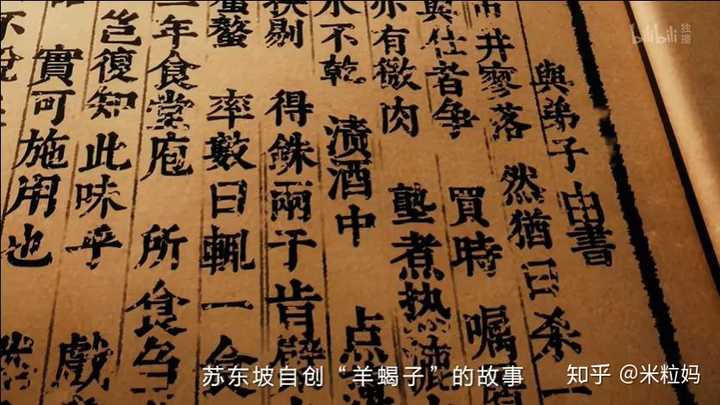 與弟子由書
井寥落 然猶日杀一
與仕者争 買時 嘱
亦有微肉 熟煮热漉
水不乾 漬酒中 点
抉剔 得銖兩于肯綮
蟹螯 率數日輒一食
年食堂庖 所食芻
復知此味乎 戲
實可施用也
不說
bilibili 独播
苏东坡自创“羊蝎子”的故事
知乎 @米粒妈